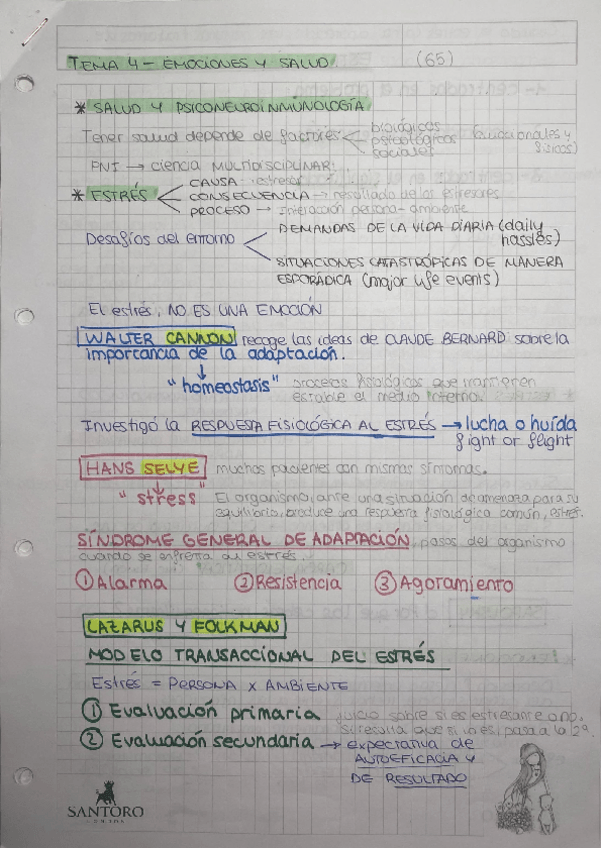 TEMA 4 - EMOCIONES Y SALUD (65)
* SALUD Y PSICONEUROINMUNOLOGÍA
Tener salud depende de factores biológicos psicológicos sociales (educacionales y físicos)
PNI → ciencia MULTIDISCIPLINAR.
* ESTRÉS
CAUSA: estresor
CONSECUENCIA → resultado de los estresores
PROCESO → interacción persona-ambiente
Desafíos del entorno
DEMANDAS DE LA VIDA DIARIA (daily hassles)
SITUACIONES CATASTRÓFICAS DE MANERA
ESPORÁDICA (major life events)
El estrés, NO ES UNA EMOCIÓN
WALTER CANNON recoge las ideas de CLAUDE BERNARD sobre la
importancia de la adaptación.
"homeostasis" procesos fisiológicos que mantienen
estable el medio interno.
Investigó la RESPUESTA FISIOLÓGICA AL ESTRÉS → lucha o huída
fight or flight
HANS SELYE muchos pacientes con mismos síntomas.
"stress" El organismo, ante una situación de amenaza para su
equilibrio, produce una respuesta fisiológica común, estrés.
SÍNDROME GENERAL DE ADAPTACIÓN, pasos del organismo
cuando se enfrenta al estrés.
① Alarma ② Resistencia ③ Agotamiento
LAZARUS Y FOLKMAN
MODELO TRANSACCIONAL DEL ESTRÉS
Estrés = PERSONA X AMBIENTE
① Evaluación primaria juicio sobre si es estresante o no.
Si resulta que si lo es, pasa a la 2ª.
② Evaluación secundaria → expectativa de
AUTOEFICACIA Y
DE RESULTADO
SANTORO
LONDON